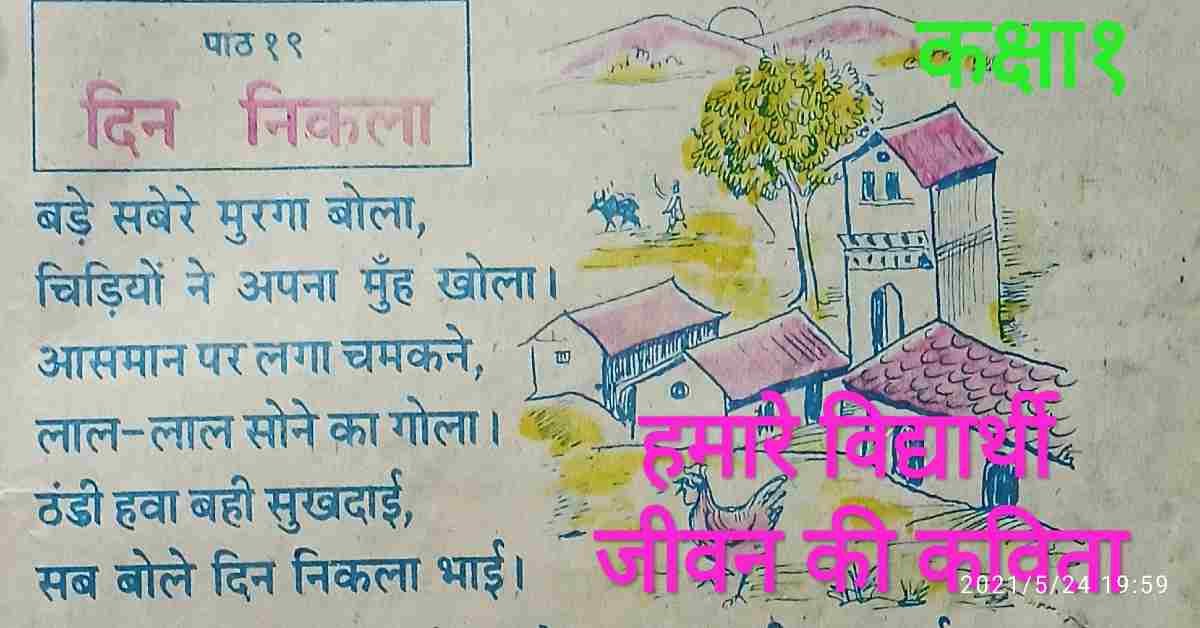 पाठ १९
दिन निकला
बड़े सबेरे मुरगा बोला,
चिड़ियों ने अपना मुँह खोला।
आसमान पर लगा चमकने,
लाल-लाल सोने का गोला।
ठंडी हवा बही सुखदाई,
सब बोले दिन निकला भाई।
कक्षा १
हमारे विद्यार्थी
जीवन की कविता
2021/5/24 19:59